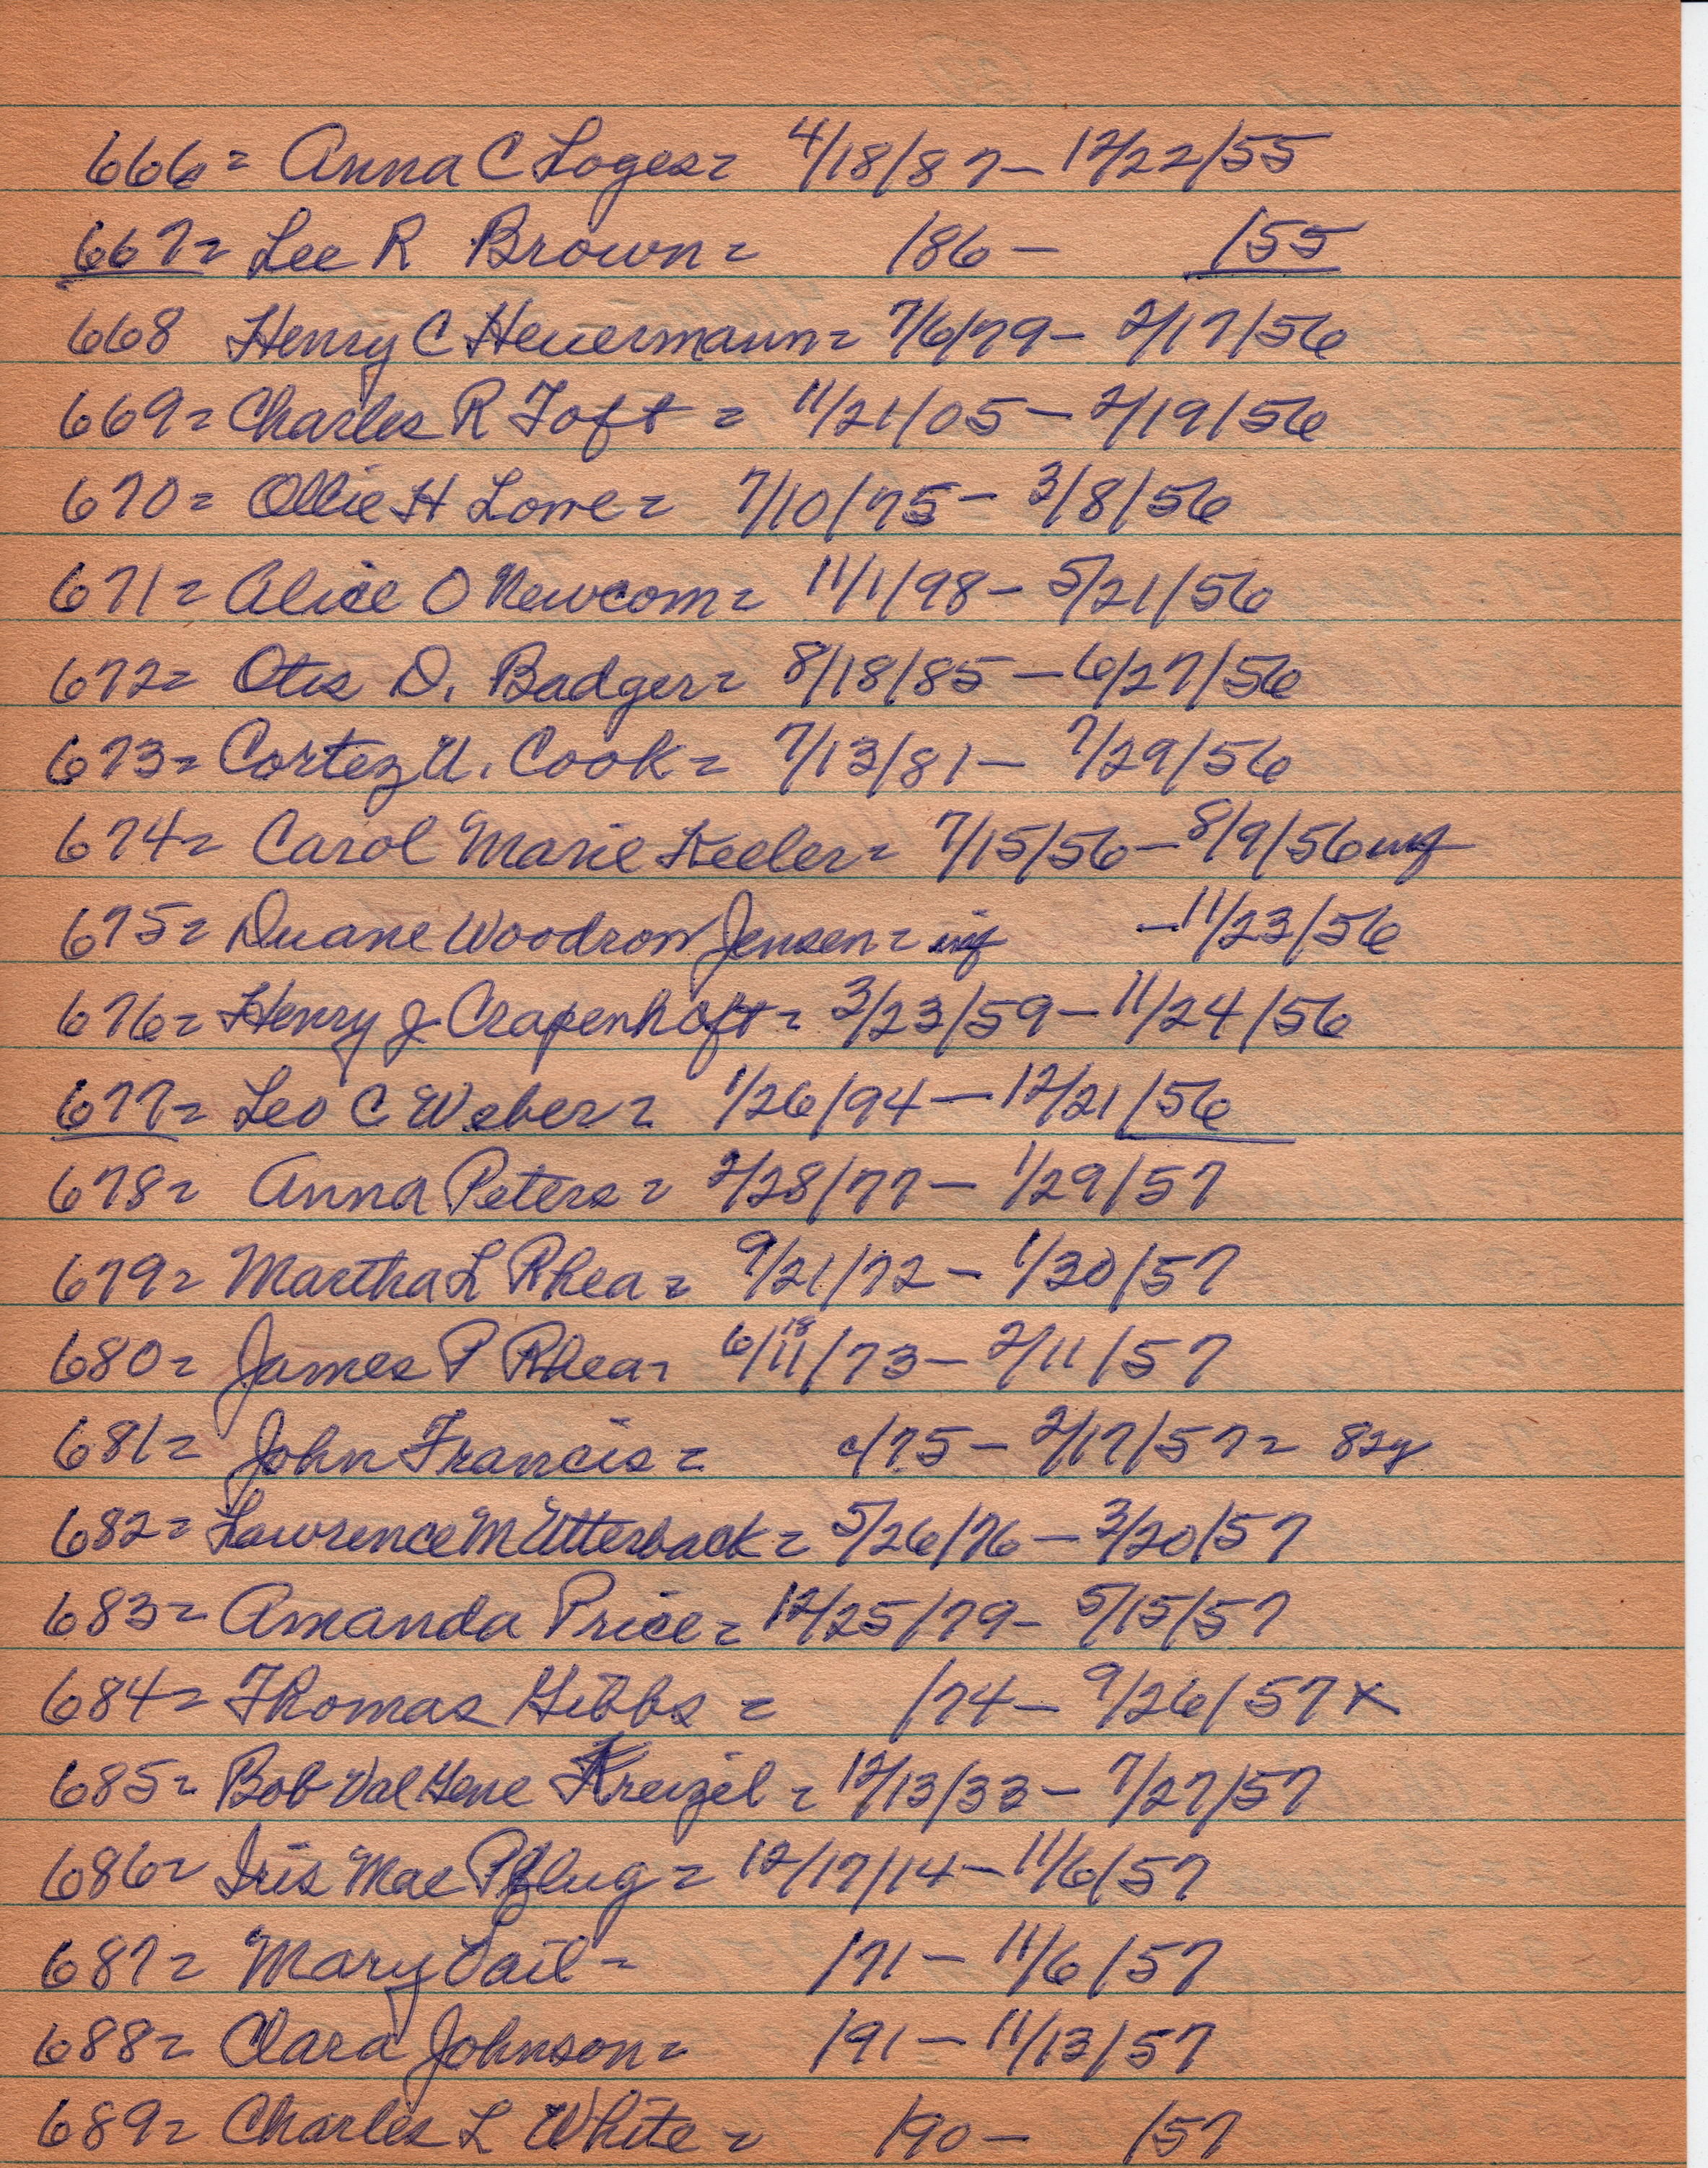 666 = Anna C Loges = 4/18/87 - 12/22/55
667 = Lee R Brown = /86 - /55
668 Henry C Heuermann = 7/6/79 - 2/17/56
669 = Charles R Toft = 11/21/05 - 2/19/56
670 = Ollie H Lowe = 7/10/75 - 3/8/56
671 = Alice O Newcom = 11/1/98 - 5/21/56
672 = Otis D. Badger = 8/18/85 - 6/27/56
673 = Cortez U. Cook = 7/13/81 - 7/29/56
674 = Carol Marie Keeler = 7/15/56 - 8/9/56 inf
675 = Duane Woodrow Jensen = inf - 11/23/56
676 = Henry J Crapenhoft = 3/23/59 - 11/24/56
677 = Leo C Weber = 1/26/94 - 12/21/56
678 = Anna Peters = 2/28/77 - 1/29/57
679 = Martha L Rhea = 9/21/72 - 1/30/57
680 = James P Rhea - 6/18/11/73 - 2/11/57
681 = John Francis = c/75 - 2/17/57 = 82y
682 = Lawrence M Utterback = 5/26/76 - 3/20/57
683 = Amanda Price = 12/25/79 - 5/15/57
684 = Thomas Gibbs = /74 - 9/26/57 x
685 = Bob Val Gene Kreizel = 12/13/33 - 7/27/57
686 = Iris Mae Pflug = 12/17/14 - 11/6/57
687 = Mary Vail = /71 - 11/6/57
688 = Clara Johnson = /91 - 11/13/57
689 = Charles L White = /90 - /57